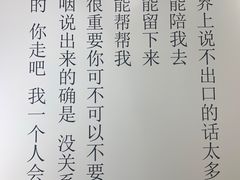 界上说不出口的话太多
能陪我去
能留下来
能帮帮我
很重要你可不可以不要
咽说出来的确是 没关系
的 你走吧 我一个人会